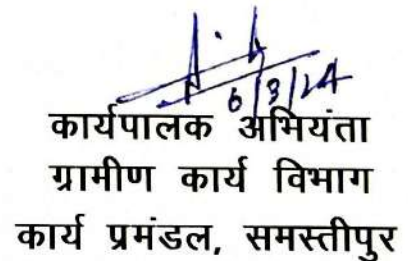 6/3/24
कार्यपालक अभियंता
ग्रामीण कार्य विभाग
कार्य प्रमंडल, समस्तीपुर